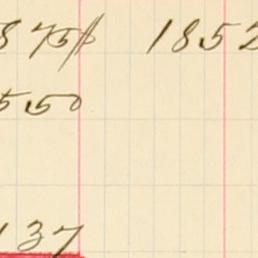 875 1852
550
137